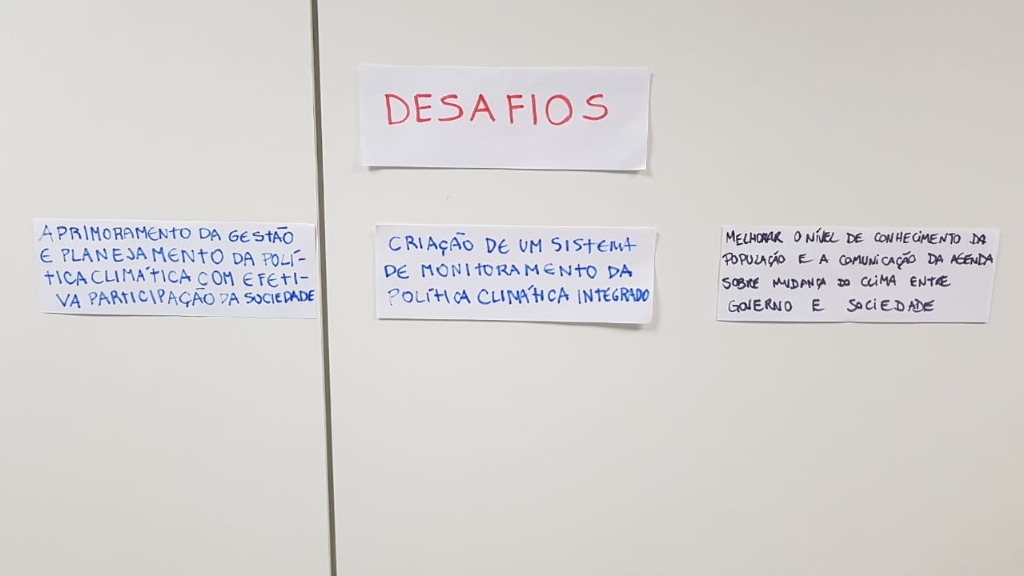 DESAFIOS
APRIMORAMENTO DA GESTÃO
E PLANEJAMENTO DA POLÍ-
TICA CLIMÁTICA COM EFETI-
VA PARTICIPAÇÃO DA SOCIEDADE
CRIAÇÃO DE UM SISTEMA
DE MONITORAMENTO DA
POLÍTICA CLIMÁTICA INTEGRADO
MELHORAR O NÍVEL DE CONHECIMENTO DA
POPULAÇÃO E A COMUNICAÇÃO DA AGENDA
SOBRE MUDANÇA DO CLIMA ENTRE
GOVERNO E SOCIEDADE